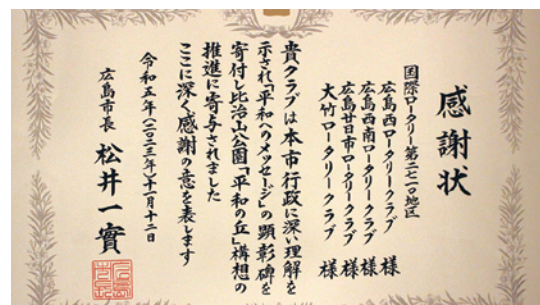 感謝状
国際ロータリー第二七一〇地区
広島西ロータリークラブ 様
広島西南ロータリークラブ 様
広島廿日市ロータリークラブ 様
大竹ロータリークラブ 様
貴クラブは本市行政に深い理解を
示され「平和へのメッセージ」の顕彰碑を
寄付し比治山公園「平和の丘」構想の
推進に寄与されました
ここに深く感謝の意を表します
令和五年(二〇二三年)十一月十二日
広島市長 松井一實